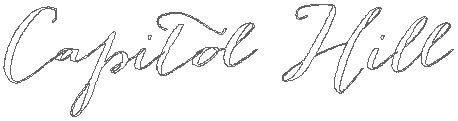 Capitol Hill